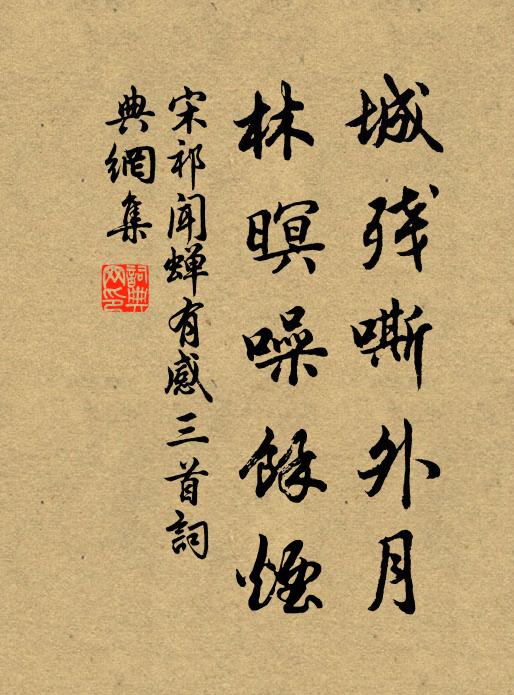 城残嘶外月
林暝噪餘煙
宋祁聞蟬有感三首詞
典網集
詞典
网印